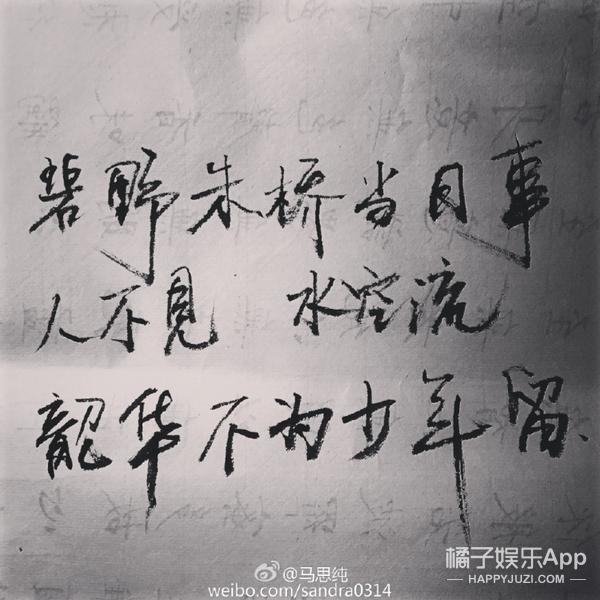 碧野朱桥当日事
人不见 水空流
韶华不为少年留
@马思纯
weibo.com/sandra0314
橘子娱乐App
HAPPYJUZI.COM